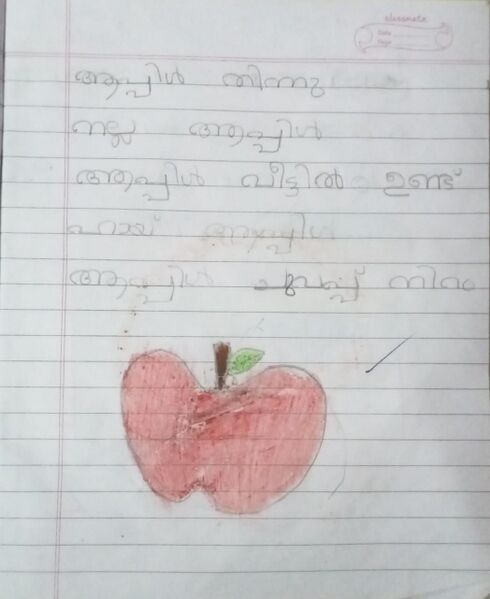 classmate
Date
Page
ആപ്പിൾ തിന്നു
നല്ല ആപ്പിൾ
ആപ്പിൾ വീട്ടിൽ ഉണ്ട്
ഹായ് ആപ്പിൾ
ആപ്പിൾ ചുവപ്പ് നിറം